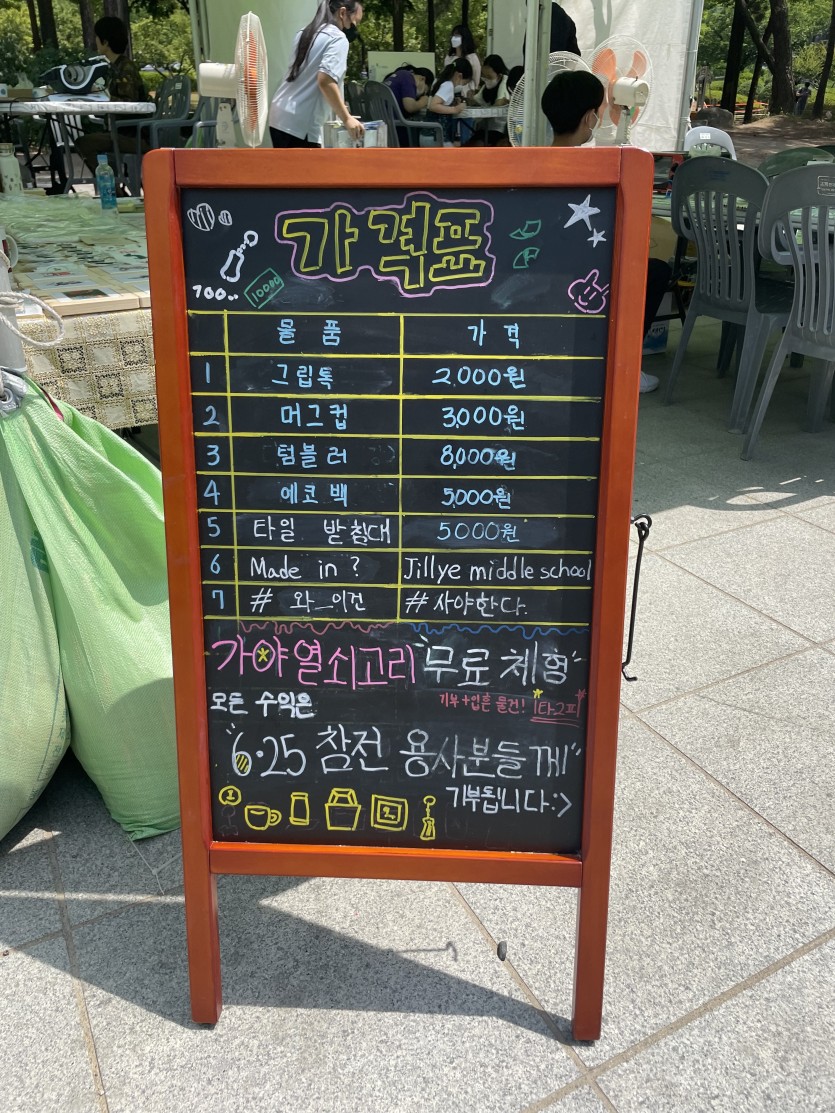 가격표
700..
10000
물품 가격
1 그립톡 2,000원
2 머그컵 3,000원
3 텀블러 8,000원
4 에코백 5,000원
5 타일 받침대 5000원
6 Made in ? Jillye middle school
7 # 와_이건 # 사야한다.
가야 열쇠고리 "무료 체험"
모든 수익은
기부+입흔 물건!
"6·25 참전 용사분들께"
기부됩니다:>